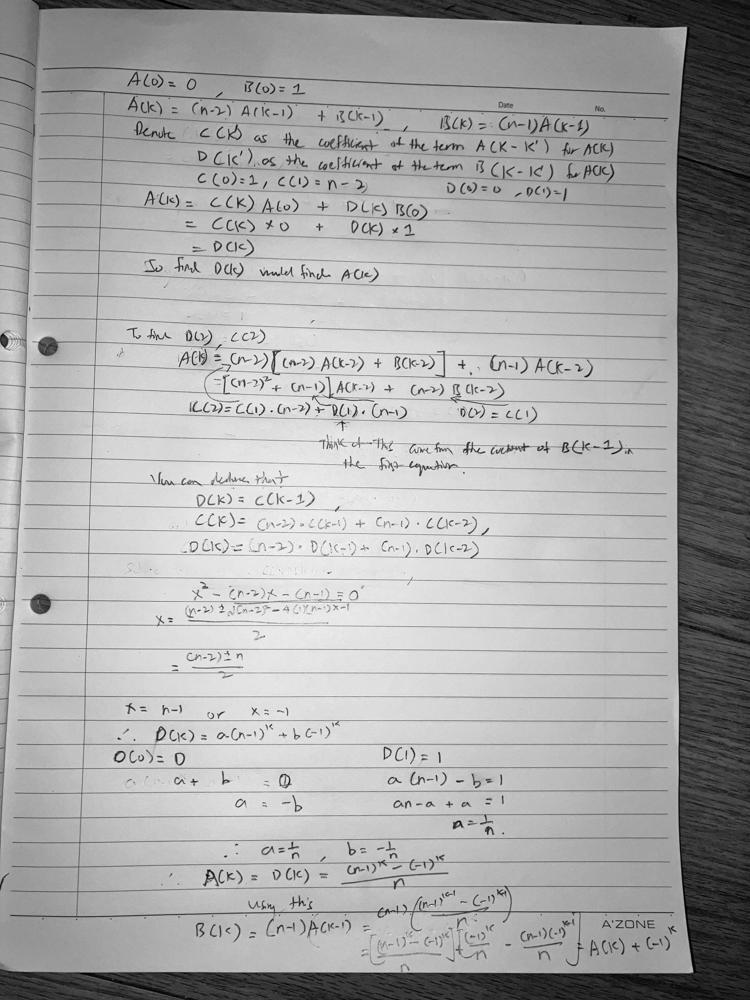 A(0) = 0 , B(0) = 1
Date No.
A(k) = (n-2) A(k-1) + B(k-1) , B(k) = (n-1)A(k-1)
Denote C(k') as the coefficient of the term A(k-k') for A(k)
D(k') as the coefficient of the term B(k-k') for A(k)
C(0)=1, C(1) = n-2 D(0)=0 , D(1)=1
A(k) = C(k) A(0) + D(k) B(0)
= C(k) × 0 + D(k) × 1
= D(k)
So find D(k) would find A(k)
To find D(2) , C(2)
A(k) = (n-2)[(n-2) A(k-2) + B(k-2)] + (n-1) A(k-2)
= [(n-2)² + (n-1)] A(k-2) + (n-2) B(k-2)
C(2) = C(1)·(n-2) + D(1)·(n-1) D(2) = C(1)
Think of this come from the of B(k-1) in
the first equation.
You can deduce that
D(k) = C(k-1) ,
C(k) = (n-2)·C(k-1) + (n-1)·C(k-2) ,
D(k) = (n-2)·D(k-1) + (n-1)·D(k-2)
x² - (n-2)x - (n-1) = 0
x = ((n-2) ± √(n-2)² - 4(1)(n-1)x-1) / 2
= ((n-2) ± n) / 2
x = n-1 or x = -1
∴ D(k) = a(n-1)^k + b(-1)^k
D(0) = 0 D(1) = 1
a + b = 0 a(n-1) - b = 1
a = -b an - a + a = 1
a = 1/n .
∴ a = 1/n , b = -1/n
∴ A(k) = D(k) = ((n-1)^k - (-1)^k) / n
Using this
B(k) = (n-1)A(k-1) = (n-1) ((n-1)^(k-1) - (-1)^(k-1)) / n
= [((n-1)^k - (-1)^k) / n] + [(-1)^k / n - (n-1)(-1)^(k-1) / n] = A(k) + (-1)^k
A'ZONE